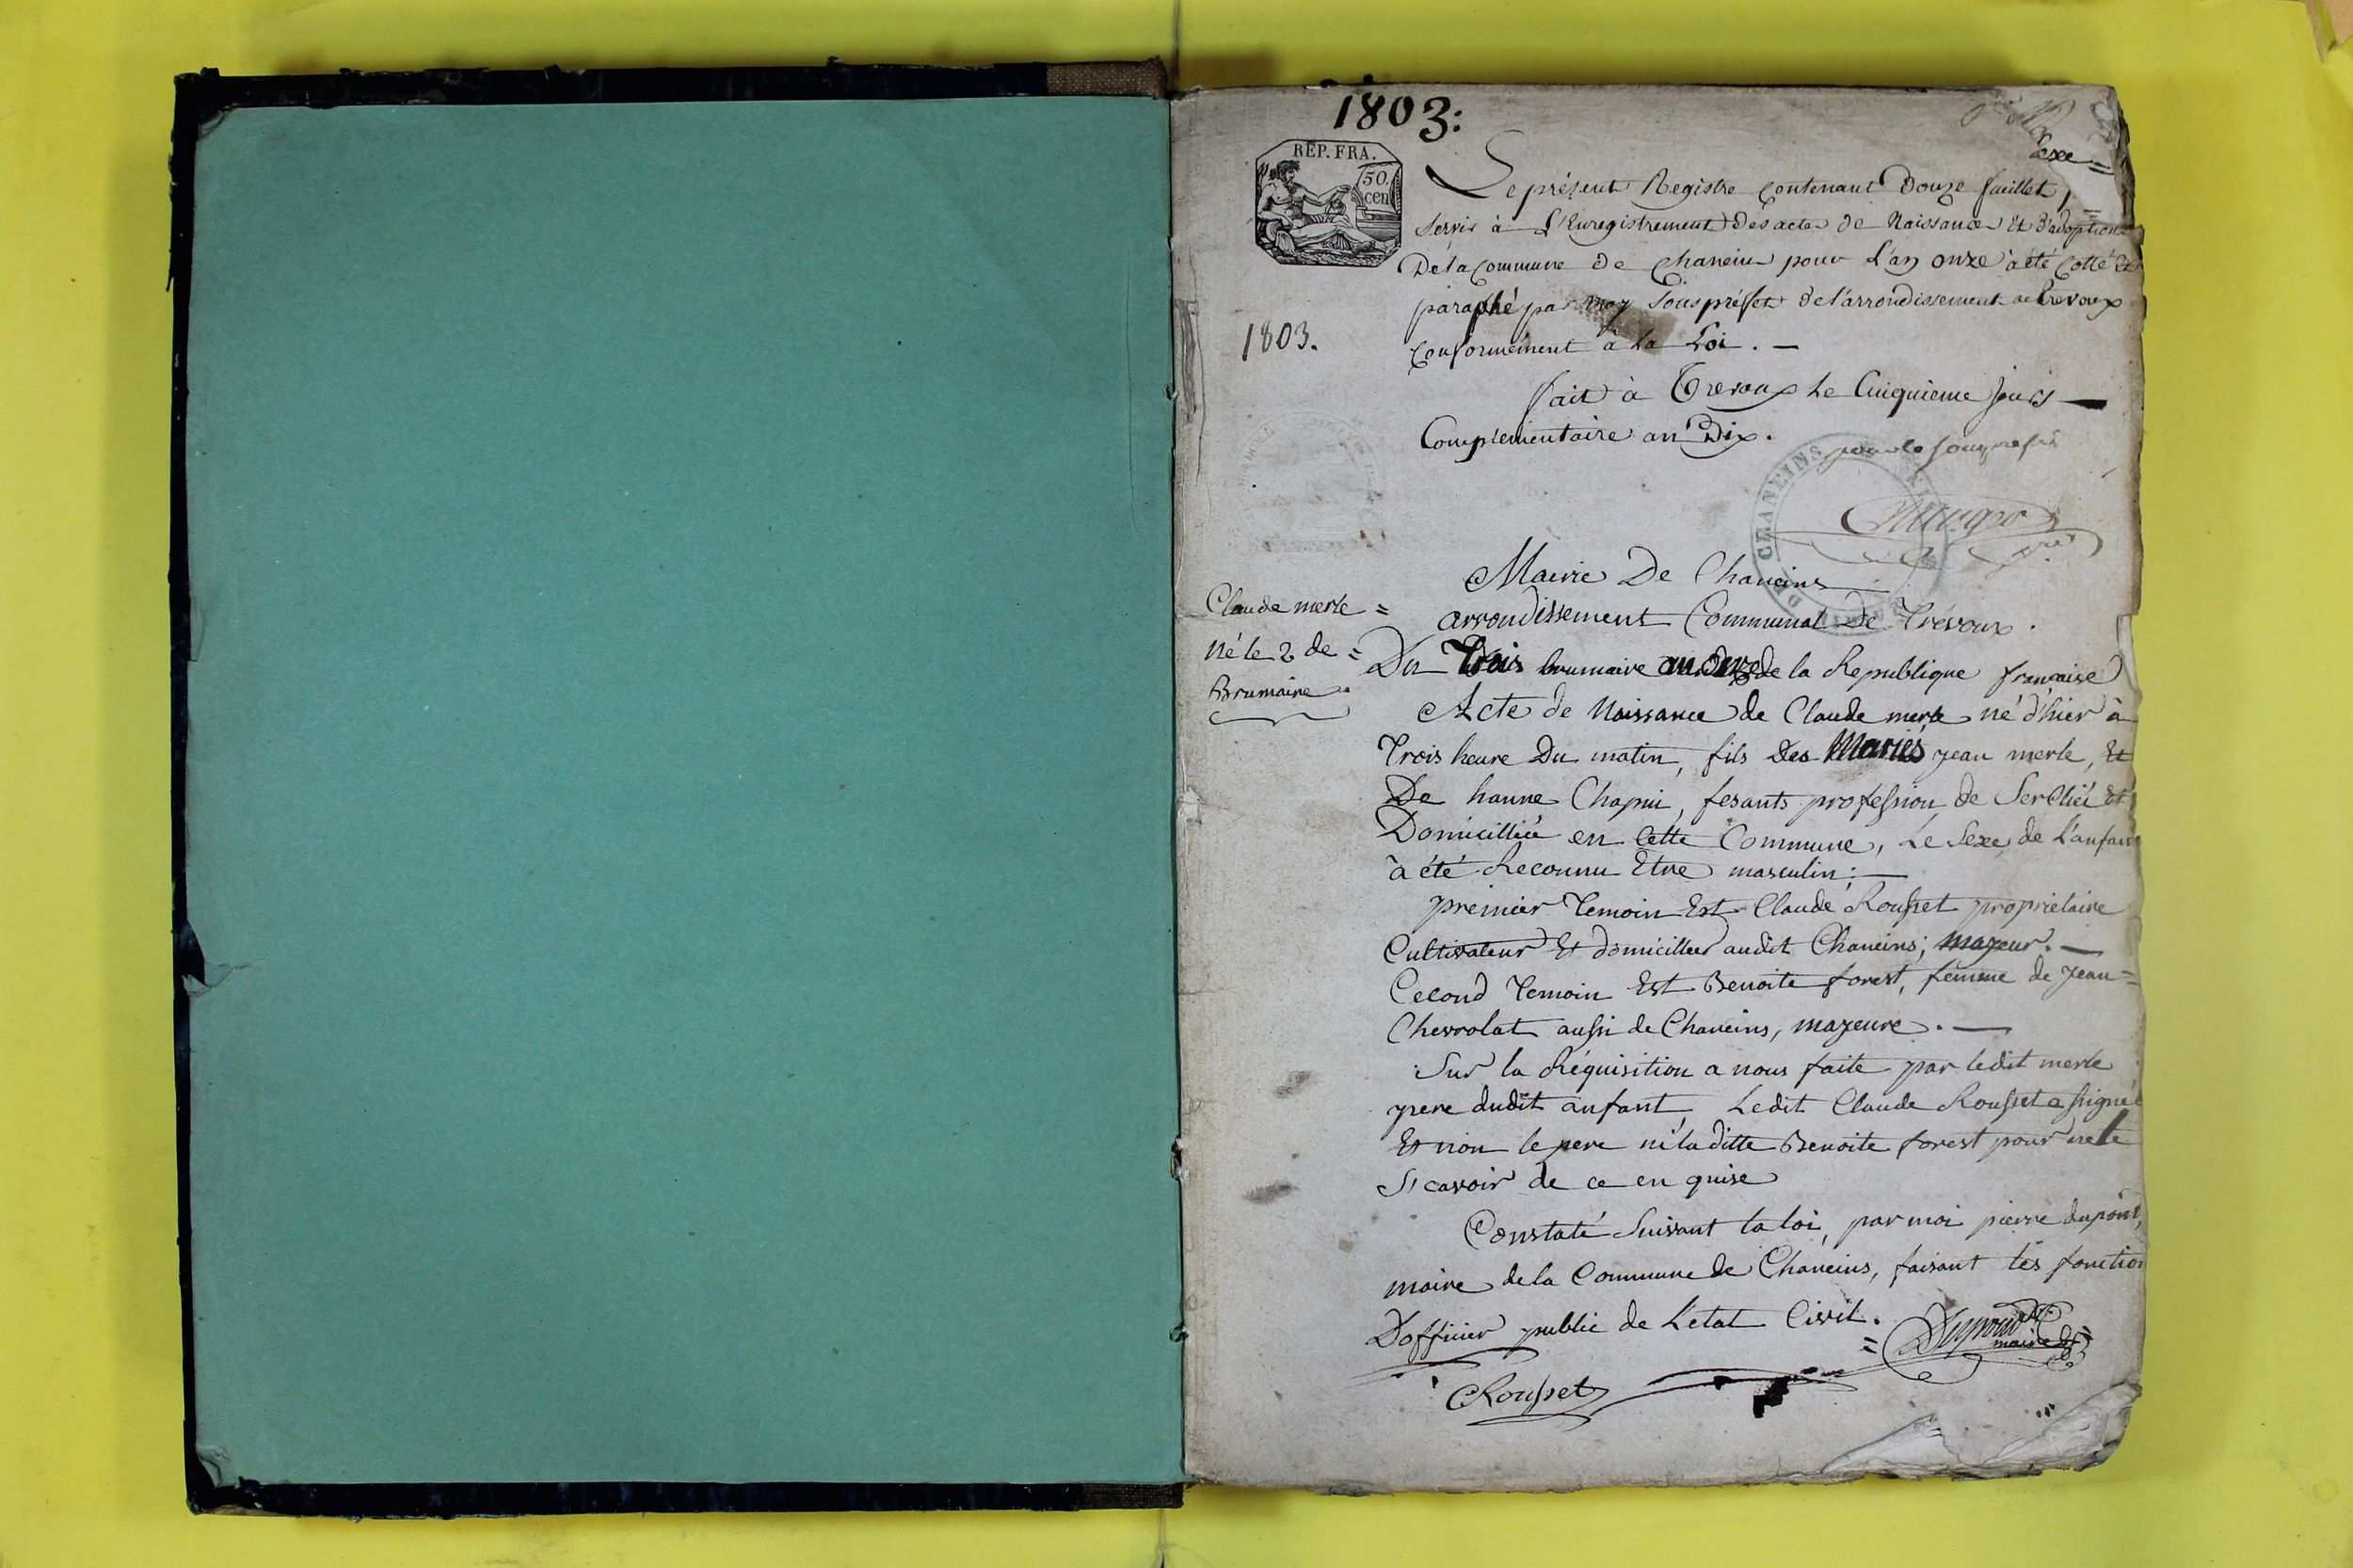 1803:
REP. FRA.
50.
cen
Le présent Registre contenant Douze fueillet,
servir à L'Enregistrement des actes de Naissance Et d'adoption
De la Commune de Chanein pour L'an onze à été Cotté Et
paraphé par moy Souspréfet de l'arrondissement de Trevoux
1803.
Conformément à La Loi. —
fait à Trevoux Le Cinquieme jours —
Complémentaire an Dix.
pour le sousprefet
DE CHANEINS
Mairie De Chaneins
arrondissement Communal De Trévoux.
Claude merle =
né le 2 de =
Brumaire.
Du Trois brumaire an onze de la Republique française
Acte de Naissance de Claude merle né d'hier à
Trois heure Du matin, fils Des Mariés jean merle, Et
De hanne Chapui, fesants profession de Serclié Et
Domicilliée en Cette Commune, Le Sexe de L'anfant
à été Reconnu Etre masculin; —
premier Temoin Est Claude Rousset propriétaire
Cultivateur Et domicillier audit Chaneins; mayeur. —
Cecond Temoin Est Benoite forest, femme de jean =
Chevrolat aussi de Chaneins, mayeure. —
Sur la Réquisition a nous faite par ledit merle
pere dudit anfant, Ledit Claude Rousset a signé
Et non le pere ni la ditte Benoite forest pour ne le
Scavoir de ce en quise
Constaté Suivant la loi, par moi pierre dupont,
maire de la Commune de Chaneins, faisant les fonction
D'officier public de L'etat Civil.
= Dupond
maire =
Rousset